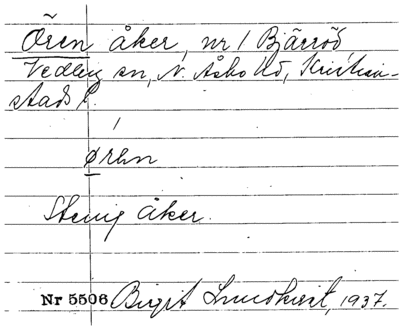 Ören åker, nr 1 Bjärröd
Vedby sn, N. Åsbo hd, Kristian-
stads l.
ørən
Stenig åker.
Nr 5506 Birgit Lundkvist, 1937.